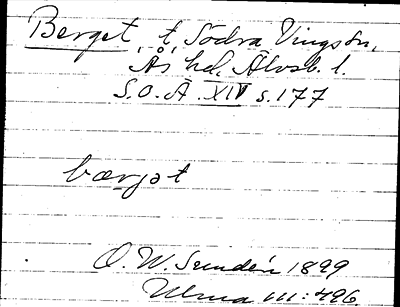 Berget, t, Södra Vings sn,
Ås hd, Älvsb. l.
S.O.Ä. XIV s. 177
bærjət
O. W. Sundén 1899
Ulma 111:496.